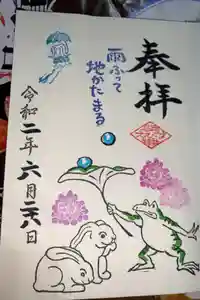 奉拝
雨ふって
地かたまる
令和二年六月二六日